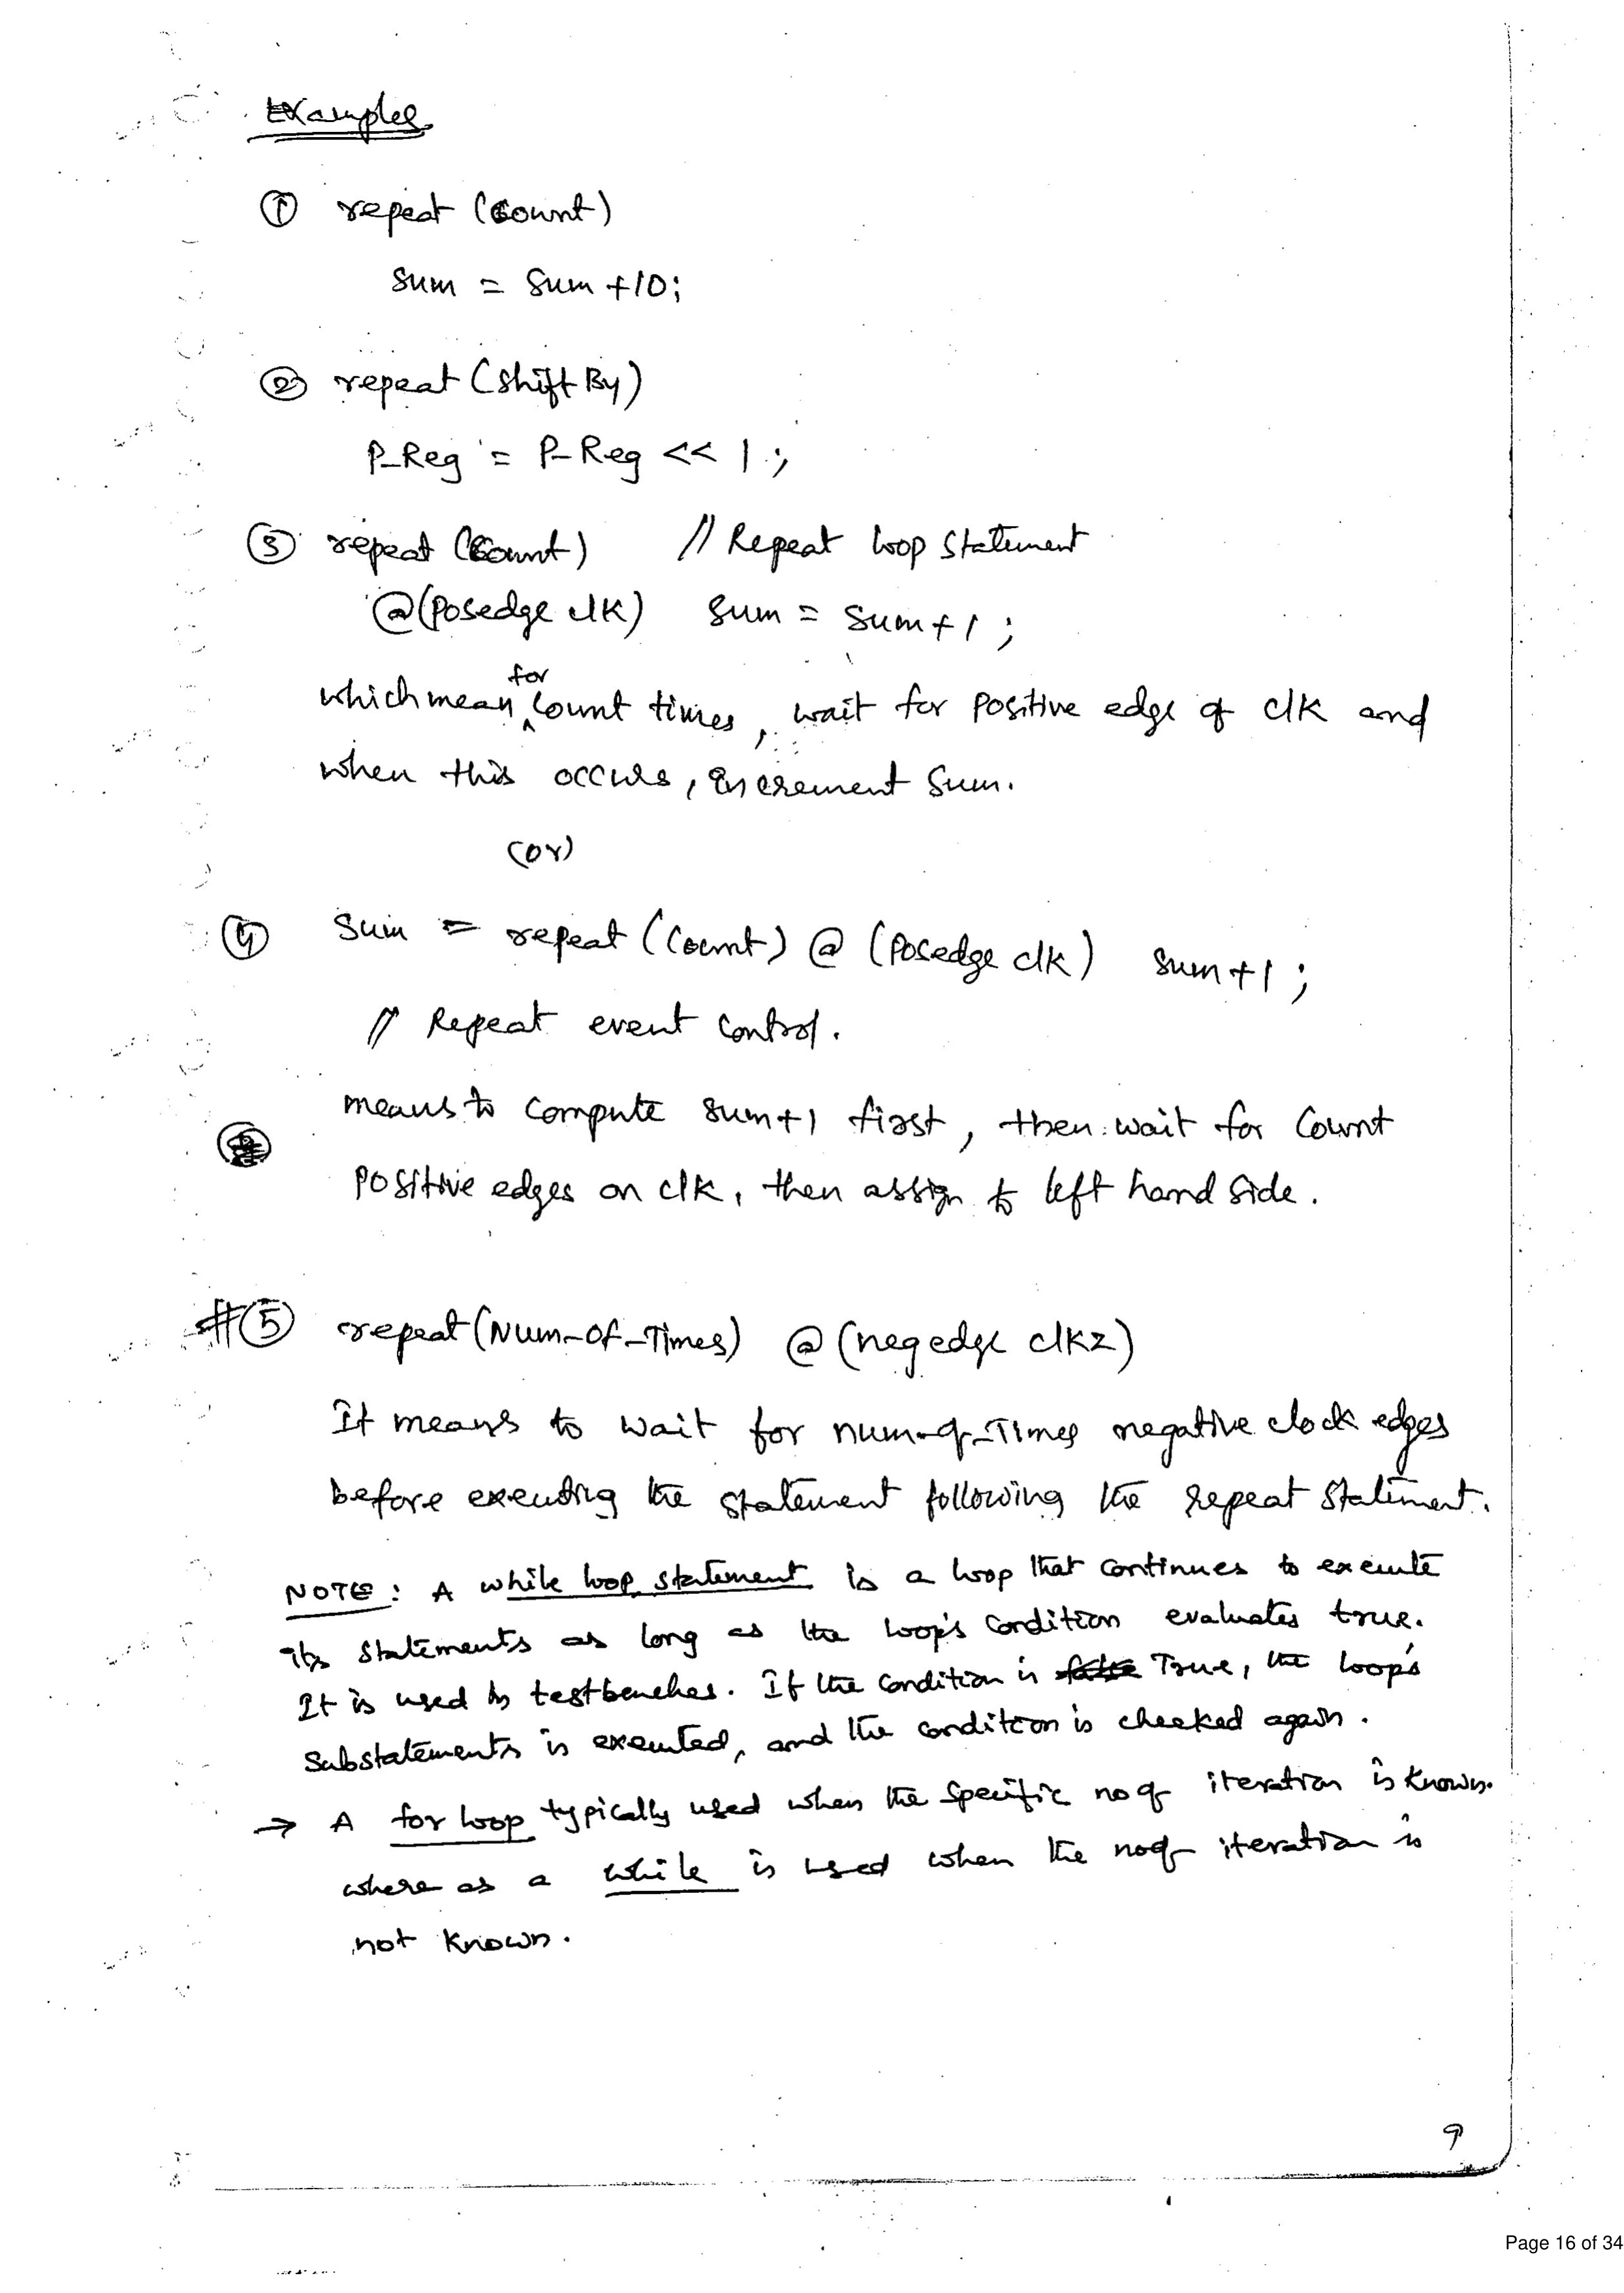 Examples
① repeat (Count)
Sum = Sum +10;
② repeat (Shift By)
P_Reg = P_Reg << 1 ;
③ repeat (Count) // Repeat loop Statement
@(Posedge clk) Sum = Sum+1 ;
which mean for Count times, wait for positive edge of clk and
when this occurs, increment Sum.
(or)
④ Sum = repeat (Count) @ (Posedge clk) Sum+1 ;
// Repeat event Control.
means to compute Sum+1 first, then wait for Count
Positive edges on clk, then assign to left hand side.
#⑤ repeat (Num-Of-Times) @ (negedge clkz)
It means to wait for num-of-Times negative clock edges
before executing the statement following the repeat Statement.
NOTE: A while loop statement is a loop that continues to execute
its statements as long as the loop's condition evaluates true.
It is used in testbenches. If the condition is false True, the loop's
Substatements is executed, and the condition is checked again.
→ A for loop typically used when the specific no of iteration is known.
where as a while is used when the no of iteration is
not known.
9
Page 16 of 34